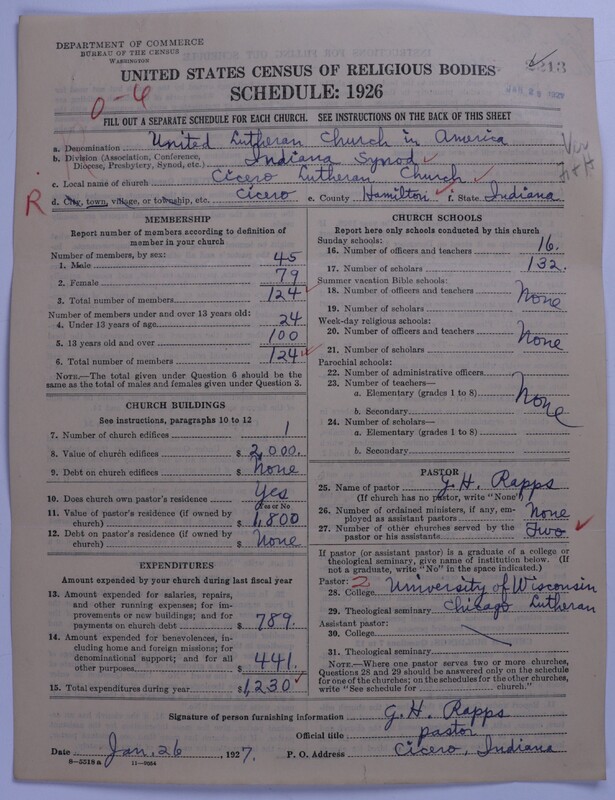 DEPARTMENT OF COMMERCE
BUREAU OF THE CENSUS
WASHINGTON
UNITED STATES CENSUS OF RELIGIOUS BODIES
SCHEDULE: 1926
0-4
FILL OUT A SEPARATE SCHEDULE FOR EACH CHURCH. SEE INSTRUCTIONS ON THE BACK OF THIS SHEET
a. Denomination United Lutheran Church in America
b. Division (Association, Conference, Diocese, Presbytery, Synod, etc.) Indiana Synod
c. Local name of church Cicero Lutheran Church
R
d. City, town, village, or township, etc. Cicero e. County Hamilton f. State Indiana
MEMBERSHIP
Report number of members according to definition of member in your church
Number of members, by sex:
1. Male 45
2. Female 79
3. Total number of members 124
Number of members under and over 13 years old:
4. Under 13 years of age 24
5. 13 years old and over 100
6. Total number of members 124
NOTE.—The total given under Question 6 should be
same as the total of males and females given under Question 3.
CHURCH BUILDINGS
See instructions, paragraphs 10 to 12
7. Number of church edifices 1
8. Value of church edifices $ 2,000.
9. Debt on church edifices $ None
10. Does church own pastor's residence Yes
Yes or No
11. Value of pastor's residence (if owned by
church) $ 1,800
12. Debt on pastor's residence (if owned by
church) $ None
EXPENDITURES
Amount expended by your church during last fiscal year
13. Amount expended for salaries, repairs,
and other running expenses; for im-
provements or new buildings; and for
payments on church debt $ 789.
14. Amount expended for benevolences, in-
cluding home and foreign missions; for
denominational support; and for all
other purposes $ 441.
15. Total expenditures during year $ 1,230
CHURCH SCHOOLS
Report here only schools conducted by this church
Sunday schools:
16. Number of officers and teachers 16.
17. Number of scholars 132.
Summer vacation Bible schools:
18. Number of officers and teachers None
19. Number of scholars
Week-day religious schools:
20. Number of officers and teachers None
21. Number of scholars
Parochial schools:
22. Number of administrative officers
23. Number of teachers—
a. Elementary (grades 1 to 8) None
b. Secondary
24. Number of scholars—
a. Elementary (grades 1 to 8)
b. Secondary
PASTOR
25. Name of pastor G. H. Rapps
(If church has no pastor, write "None")
26. Number of ordained ministers, if any, em-
ployed as assistant pastors None
27. Number of other churches served by the
pastor or his assistants Two
If pastor (or assistant pastor) is a graduate of a college or
theological seminary, give name of institution below. (If
not a graduate, write "No" in the space indicated.)
Pastor: 2
28. College University of Wisconsin
29. Theological seminary Chicago Lutheran
Assistant pastor:
30. College
31. Theological seminary
NOTE.—Where one pastor serves two or more churches,
Questions 28 and 29 should be answered only on the schedule
for one of the churches; on the schedules for the other churches,
write "See schedule for church."
Signature of person furnishing information G. H. Rapps
Official title pastor
Date Jan. 26 1927. P. O. Address Cicero, Indiana
8—5518 a 11—2654